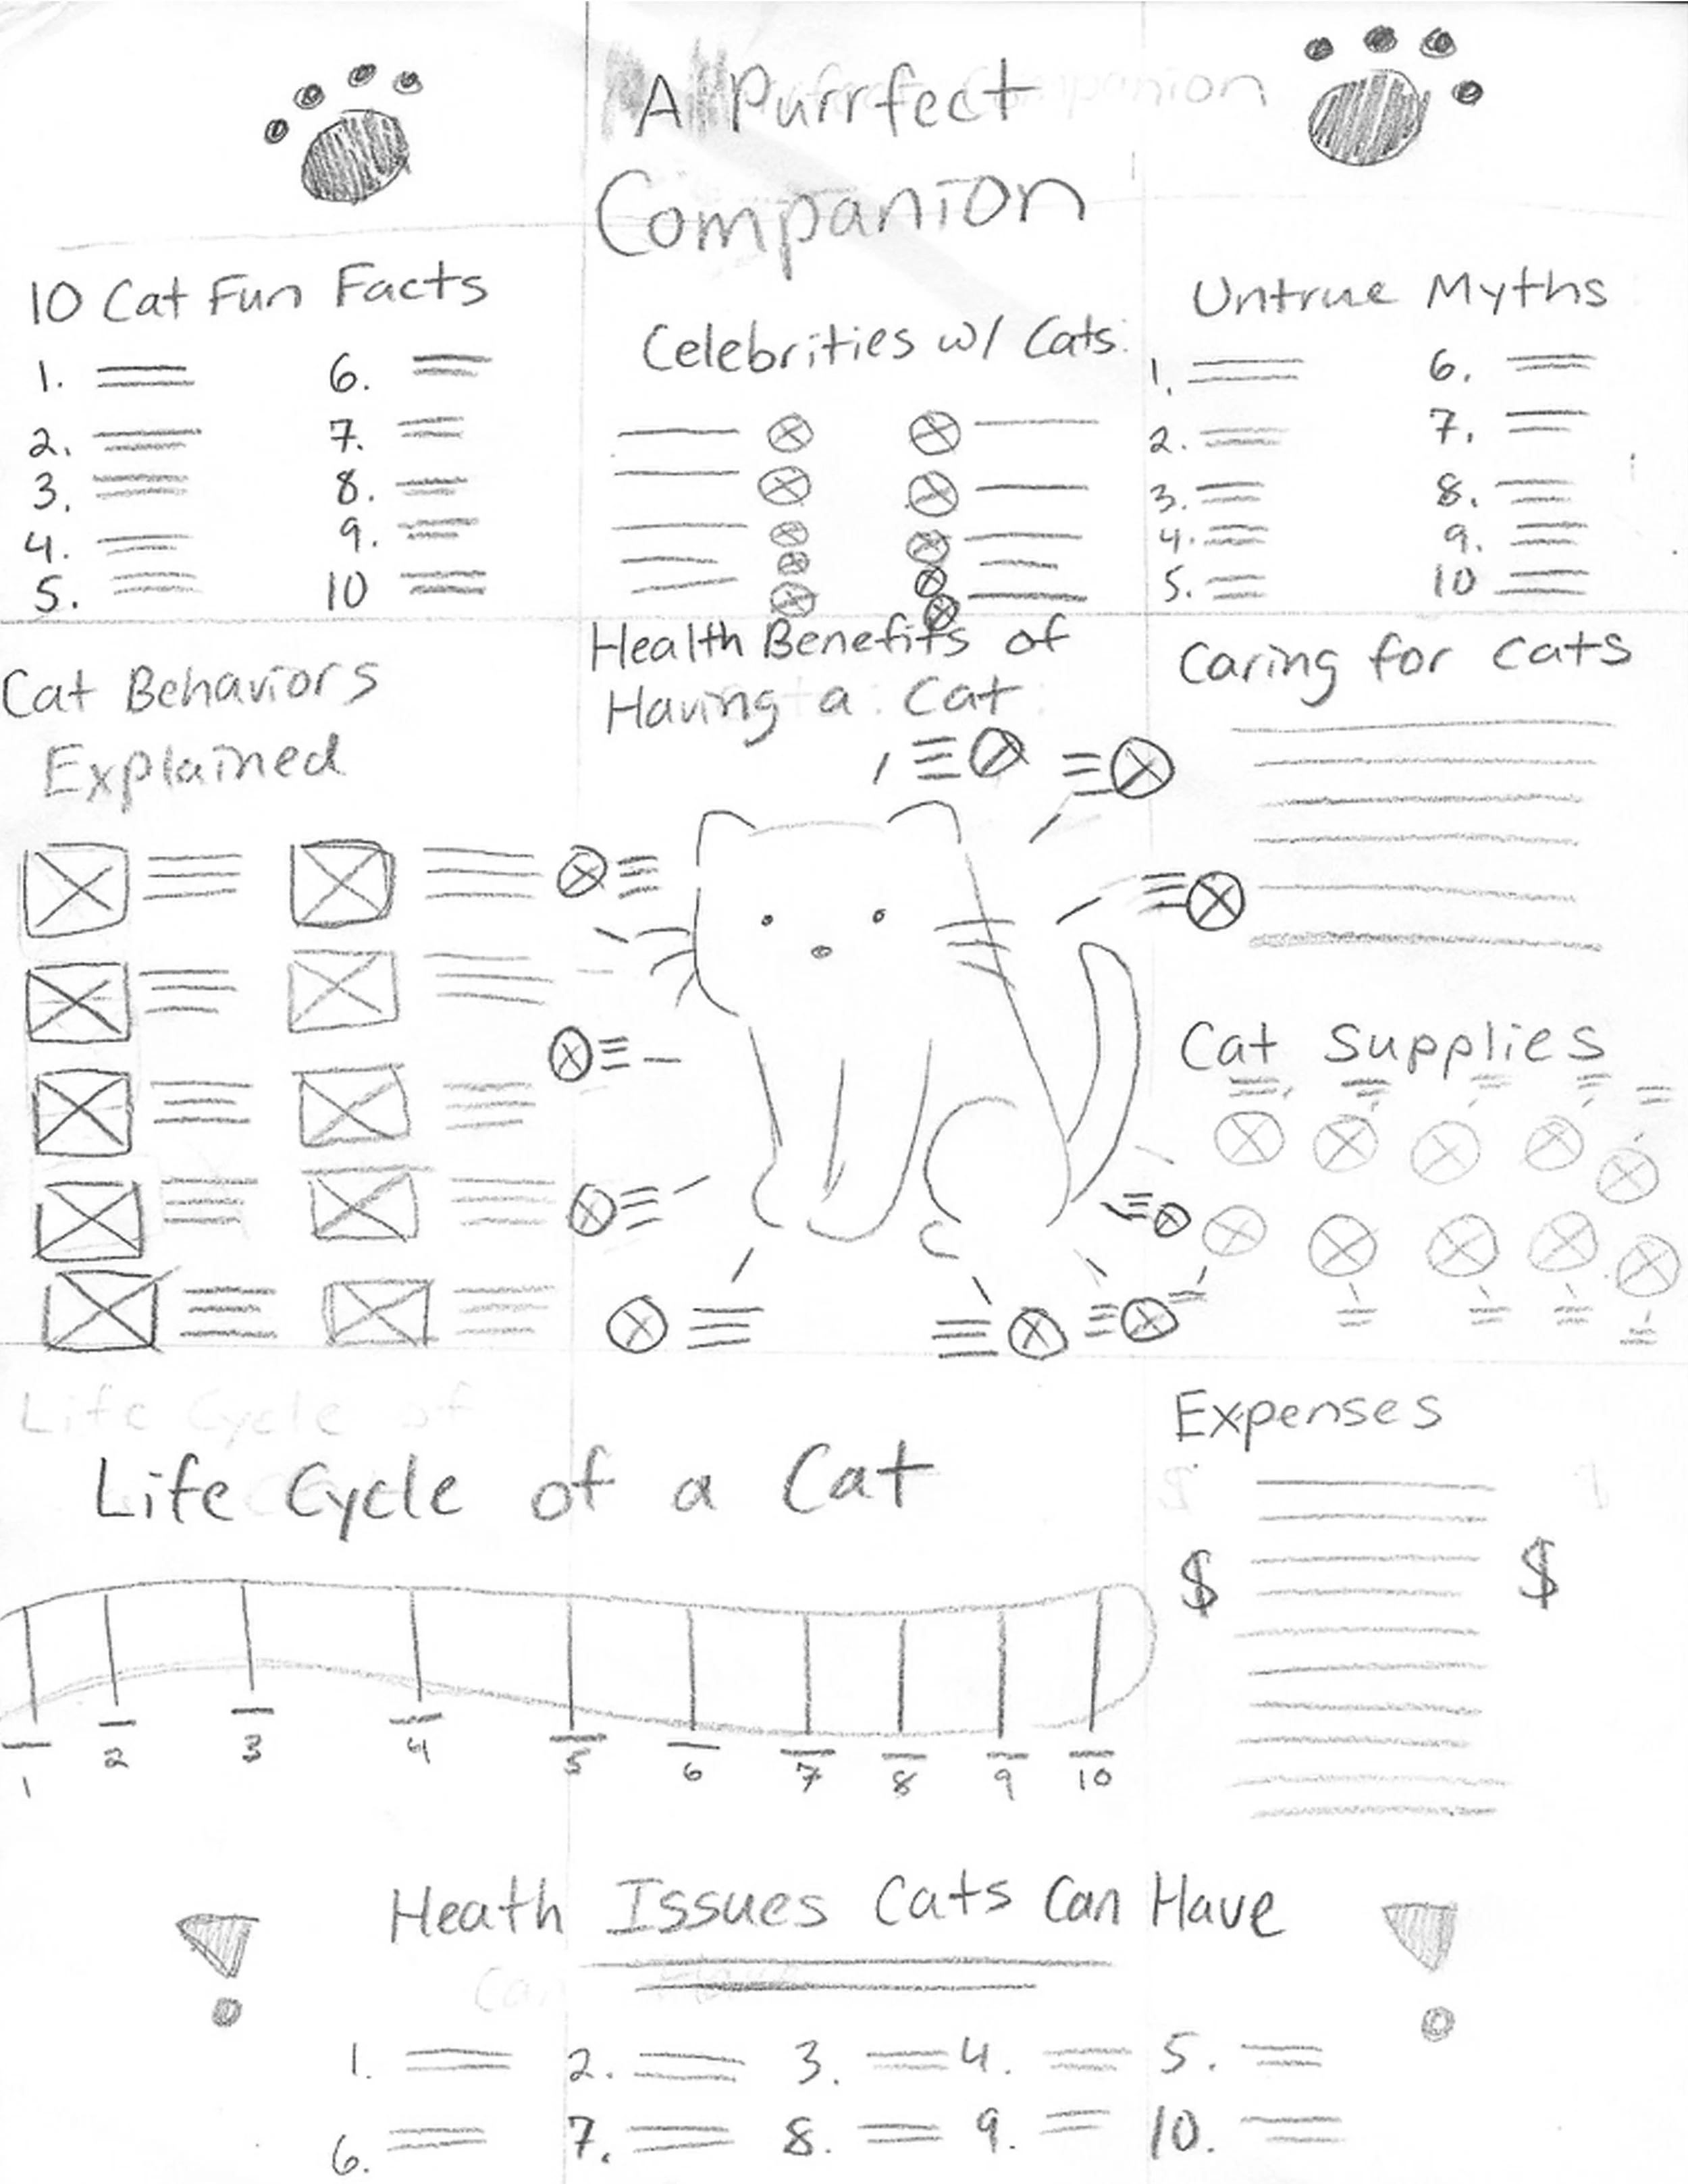 A Purrfect
Companion
10 Cat Fun Facts
1.
2.
3.
4.
5.
6.
7.
8.
9.
10
Celebrities w/ Cats
Untrue Myths
1.
2.
3.
4.
5.
6.
7.
8.
9.
10
Cat Behaviors
Explained
Health Benefits of
Having a Cat
Caring for Cats
Cat Supplies
Life Cycle of
Life Cycle of a Cat
1 2 3 4 5 6 7 8 9 10
Expenses
$ $
Heath Issues Cats Can Have
1. 2. 3. 4. 5.
6. 7. 8. 9. 10.